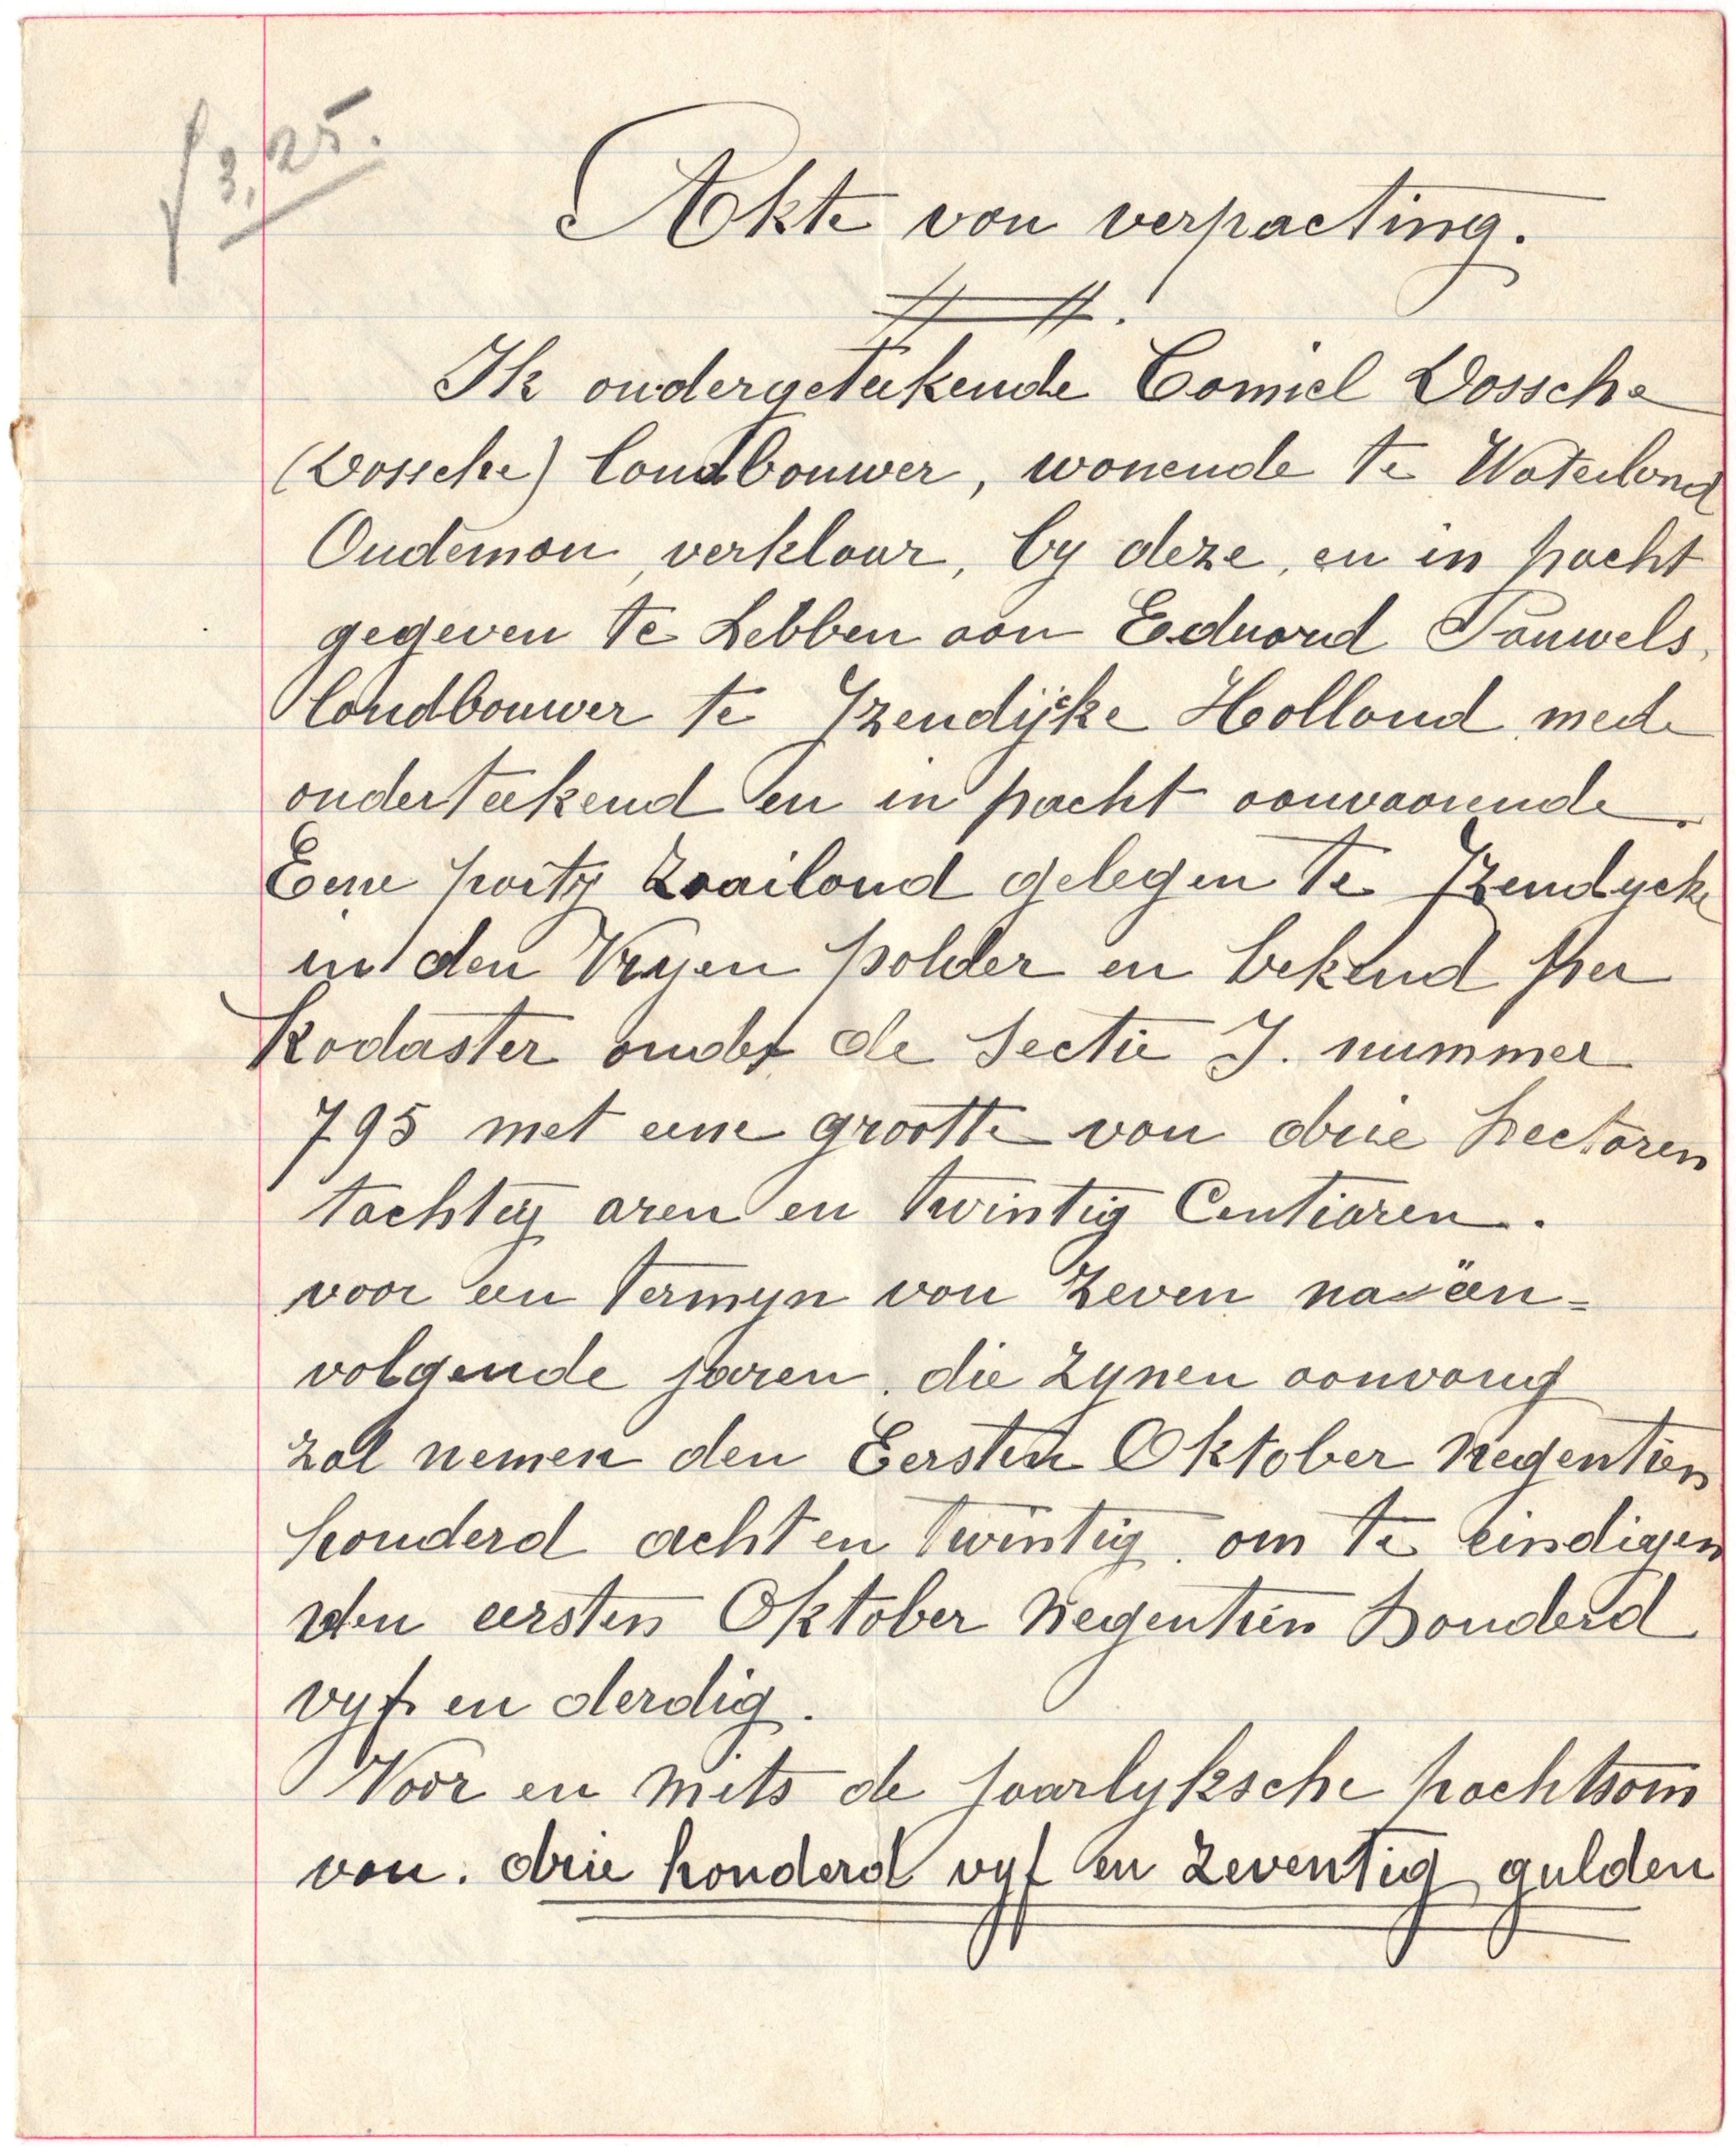 ƒ 3,25.
Akte van verpacting.
Ik ondergeteekende Camiel Dossche
(Dossche) landbouwer, wonende te Waterland
Oudeman, verklaar, by deze, en in pacht
gegeven te hebben aan Eduard Pauwels,
landbouwer te Yzendijke Holland mede
onderteekend en in pacht aanvaarende.
Eene party Zaailand gelegen te Yzendycke
in den Vryen polder en bekend per
Kadaster onder de Sectie J. nummer
795 met eene grootte van drie hectaren
tachtig aren en twintig Centiaren.
voor een termyn van Zeven na een=
volgende jaren, die zynen aanvang
zal nemen den Eersten Oktober Negentien
honderd acht en twintig, om te eindigen
den eersten Oktober Negentien honderd
vyf en derdig.
Voor en mits de jaarlyksche pachtsom
van. drie honderd vyf en zeventig gulden